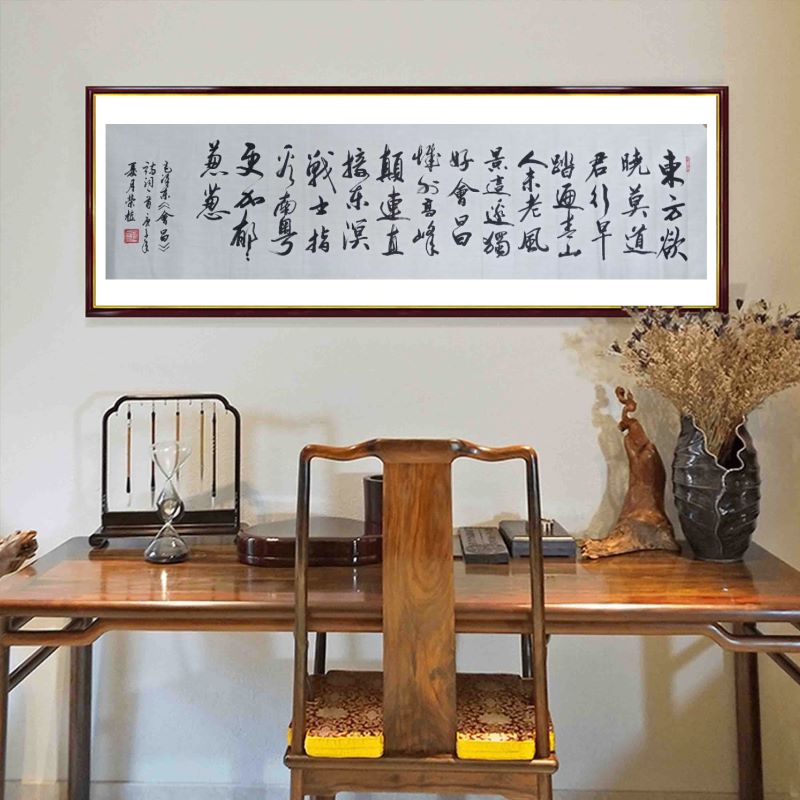 東方欲
曉莫道
君行早
踏遍青山
人未老風
景這邊獨
好會昌
城外高峰
顛連直
接东溟
战士指
看南粵
更加郁〻
葱葱
毛泽东《會昌》
诗词一首庚子年
夏月荣